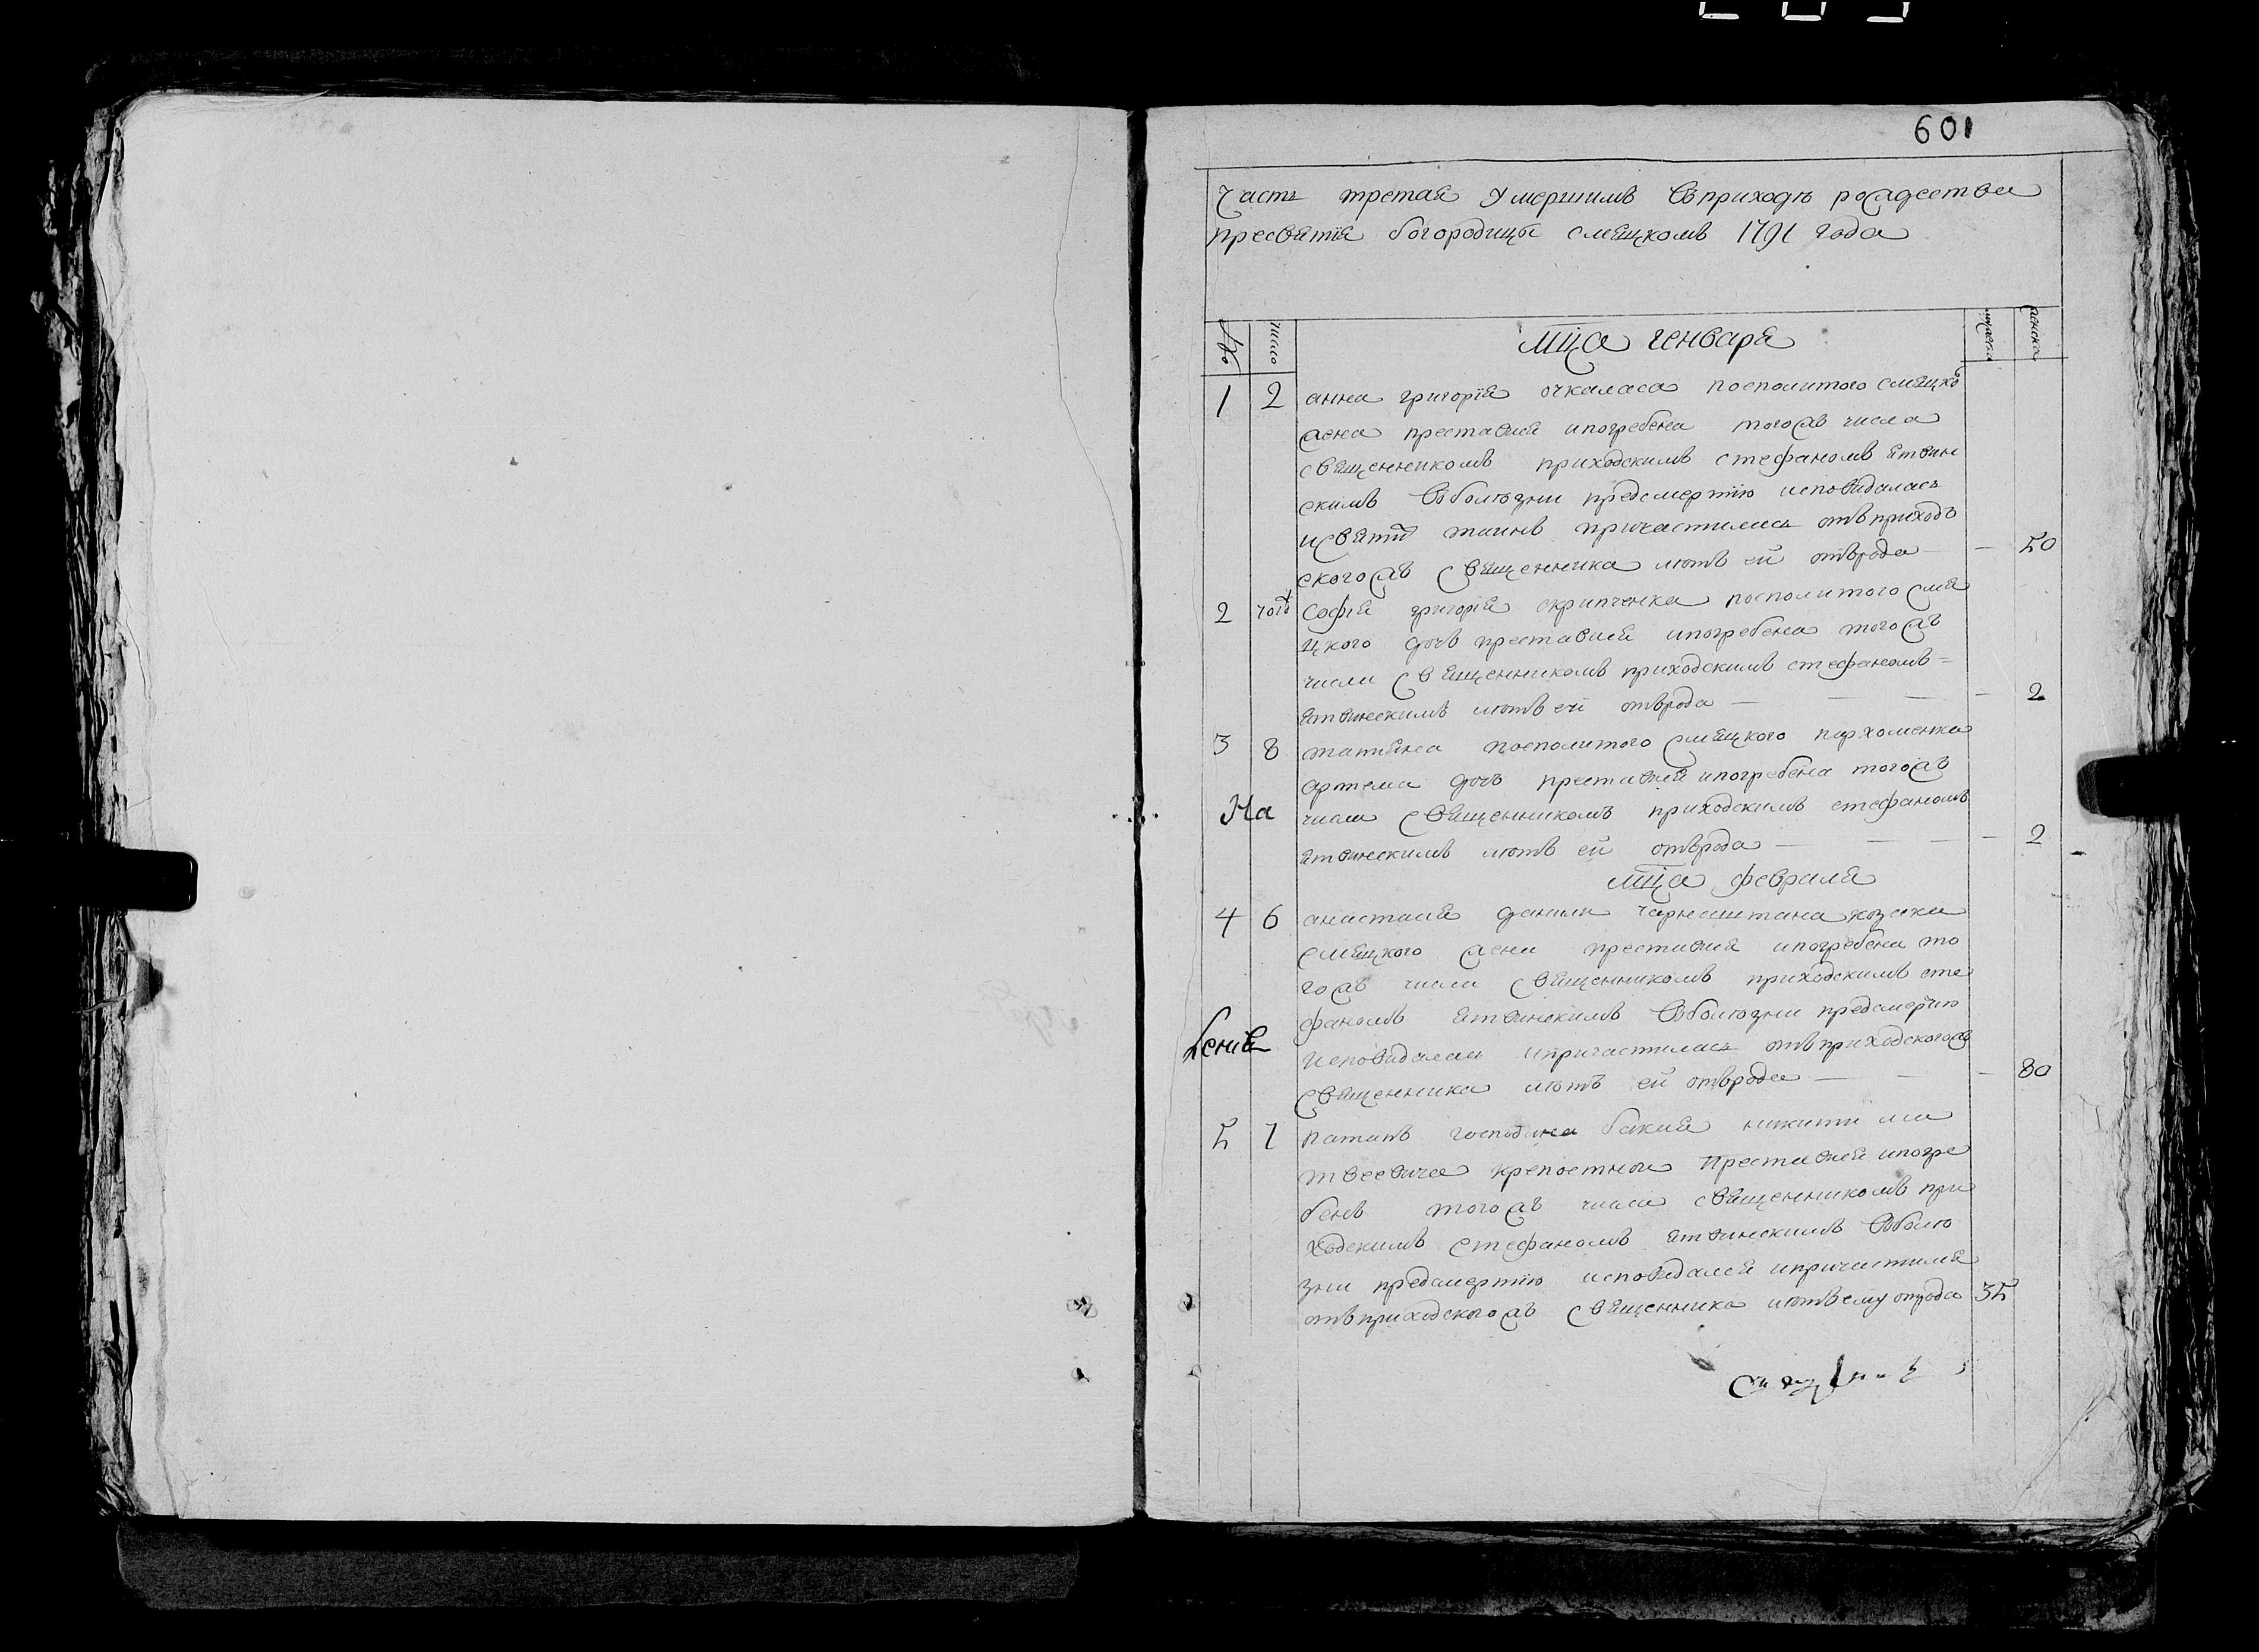 601
Часть третая Умершимъ Въприходѣ рождества
пресвятія богородицы смяцкомъ 1791 года
№ число мца генваря мужеска женска
1 2 анна григорія очкаласа посполитого смяцкѡ
жена преставися ипогребена тогожъ числа
священникомъ приходскимъ стефаномъ ятвин
скимъ Вболюзни предсмертію исповидалась
исвятй таинъ причастилась отъприход
скогожъ священника лютъ ей отърода — 50
2 тогож софія григорія скрипченка посполитого смя
цкого дочъ преставися ипогребена тогожъ
числа священникомъ приходскимъ стефаномъ =
ятвинскимъ лютъ ей отърода — — — — 2
3 8 татіяна посполитого смяцкого пархоменка
артема дочъ преставися ипогребена тогожъ
На числа священникомъ приходскимъ стефаномъ
ятвинскимъ лютъ ей отърода — — — — 2
мца февраля
4 6 анастасія данила козака
смяцкого жена преставися ипогребена то
гожъ числа священникомъ приходскимъ сте
фаномъ ятвинскимъ Вболюзни предсмертію
исповидалась ипричастилась отъприходскогожъ
священника лютъ ей отърода — — — 80
5 7 господина бакия никити ма
твеевича крепостной Преставися ипогре
бенъ тогожъ числа священникомъ при
ходскимъ стефаномъ ятвинскимъ Вболю
зни предсмертію исповидался ипричастился
отъприходскогожъ священника лютъ ему отрода 35